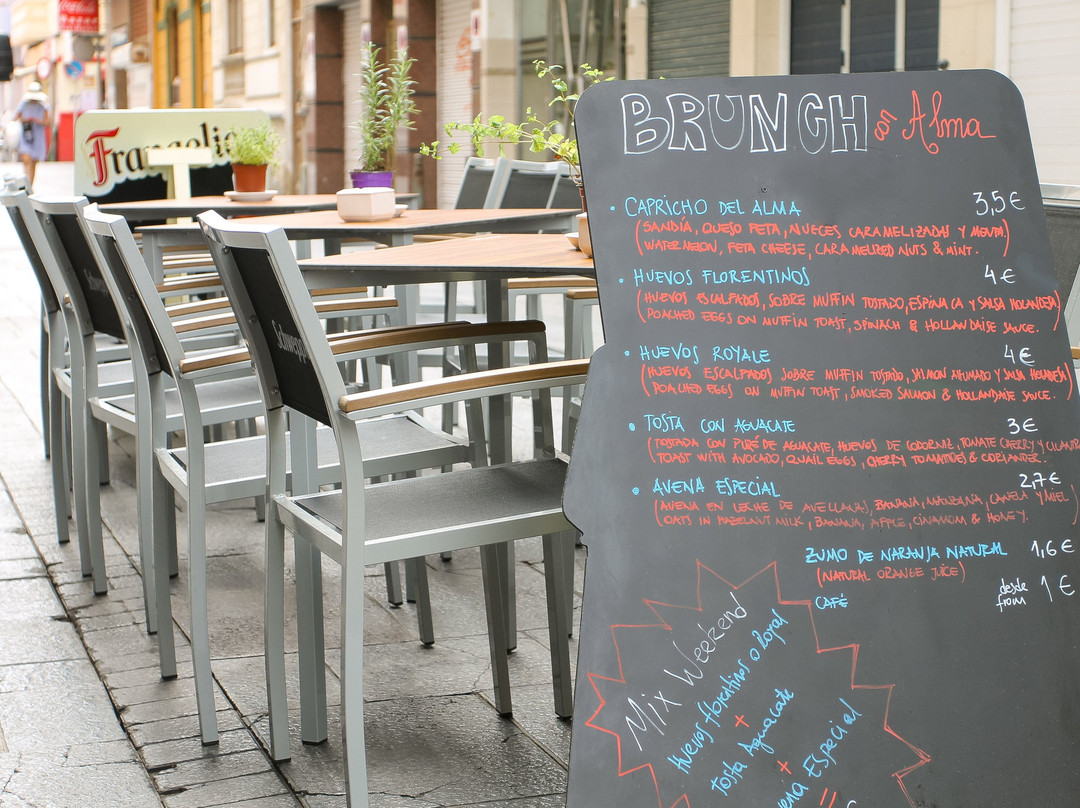 Frangelic
Schweppe
BRUNCH con Alma
CAPRICHO DEL ALMA 3,5€
(SANDÍA, QUESO FETA, NUECES CARAMELIZADAS Y MENTA)
WATERMELON, FETA CHEESE, CARAMELIZED NUTS & MINT.
HUEVOS FLORENTINOS 4€
(HUEVOS ESCALFADOS, SOBRE MUFFIN TOSTADO, ESPINACA Y SALSA HOLANDESA)
POACHED EGGS ON MUFFIN TOAST, SPINACH & HOLLANDAISE SAUCE.
HUEVOS ROYALE 4€
(HUEVOS ESCALFADOS SOBRE MUFFIN TOSTADO, SALMON AHUMADO Y SALSA HOLANDESA)
POACHED EGGS ON MUFFIN TOAST, SMOKED SALMON & HOLLANDAISE SAUCE.
TOSTA CON AGUACATE 3€
(TOSTADA CON PURÉ DE AGUACATE, HUEVOS DE CODORNIZ, TOMATE CHERRY Y CILANTRO
TOAST WITH AVOCADO, QUAIL EGGS, CHERRY TOMATOES & CORIANDER.
AVENA ESPECIAL 2,7€
(AVENA EN LECHE DE AVELLANAS, BANANA, MANZANA, CANELA Y MIEL)
OATS IN HAZELNUT MILK, BANANA, APPLE, CINAMOM & HONEY.
ZUMO DE NARANJA NATURAL 1,6€
(NATURAL ORANGE JUICE)
CAFÉ desde from 1€
Mix Weekend
Huevos florentinos o Royal
+
tosta Aguacate
+
Avena Especial
=